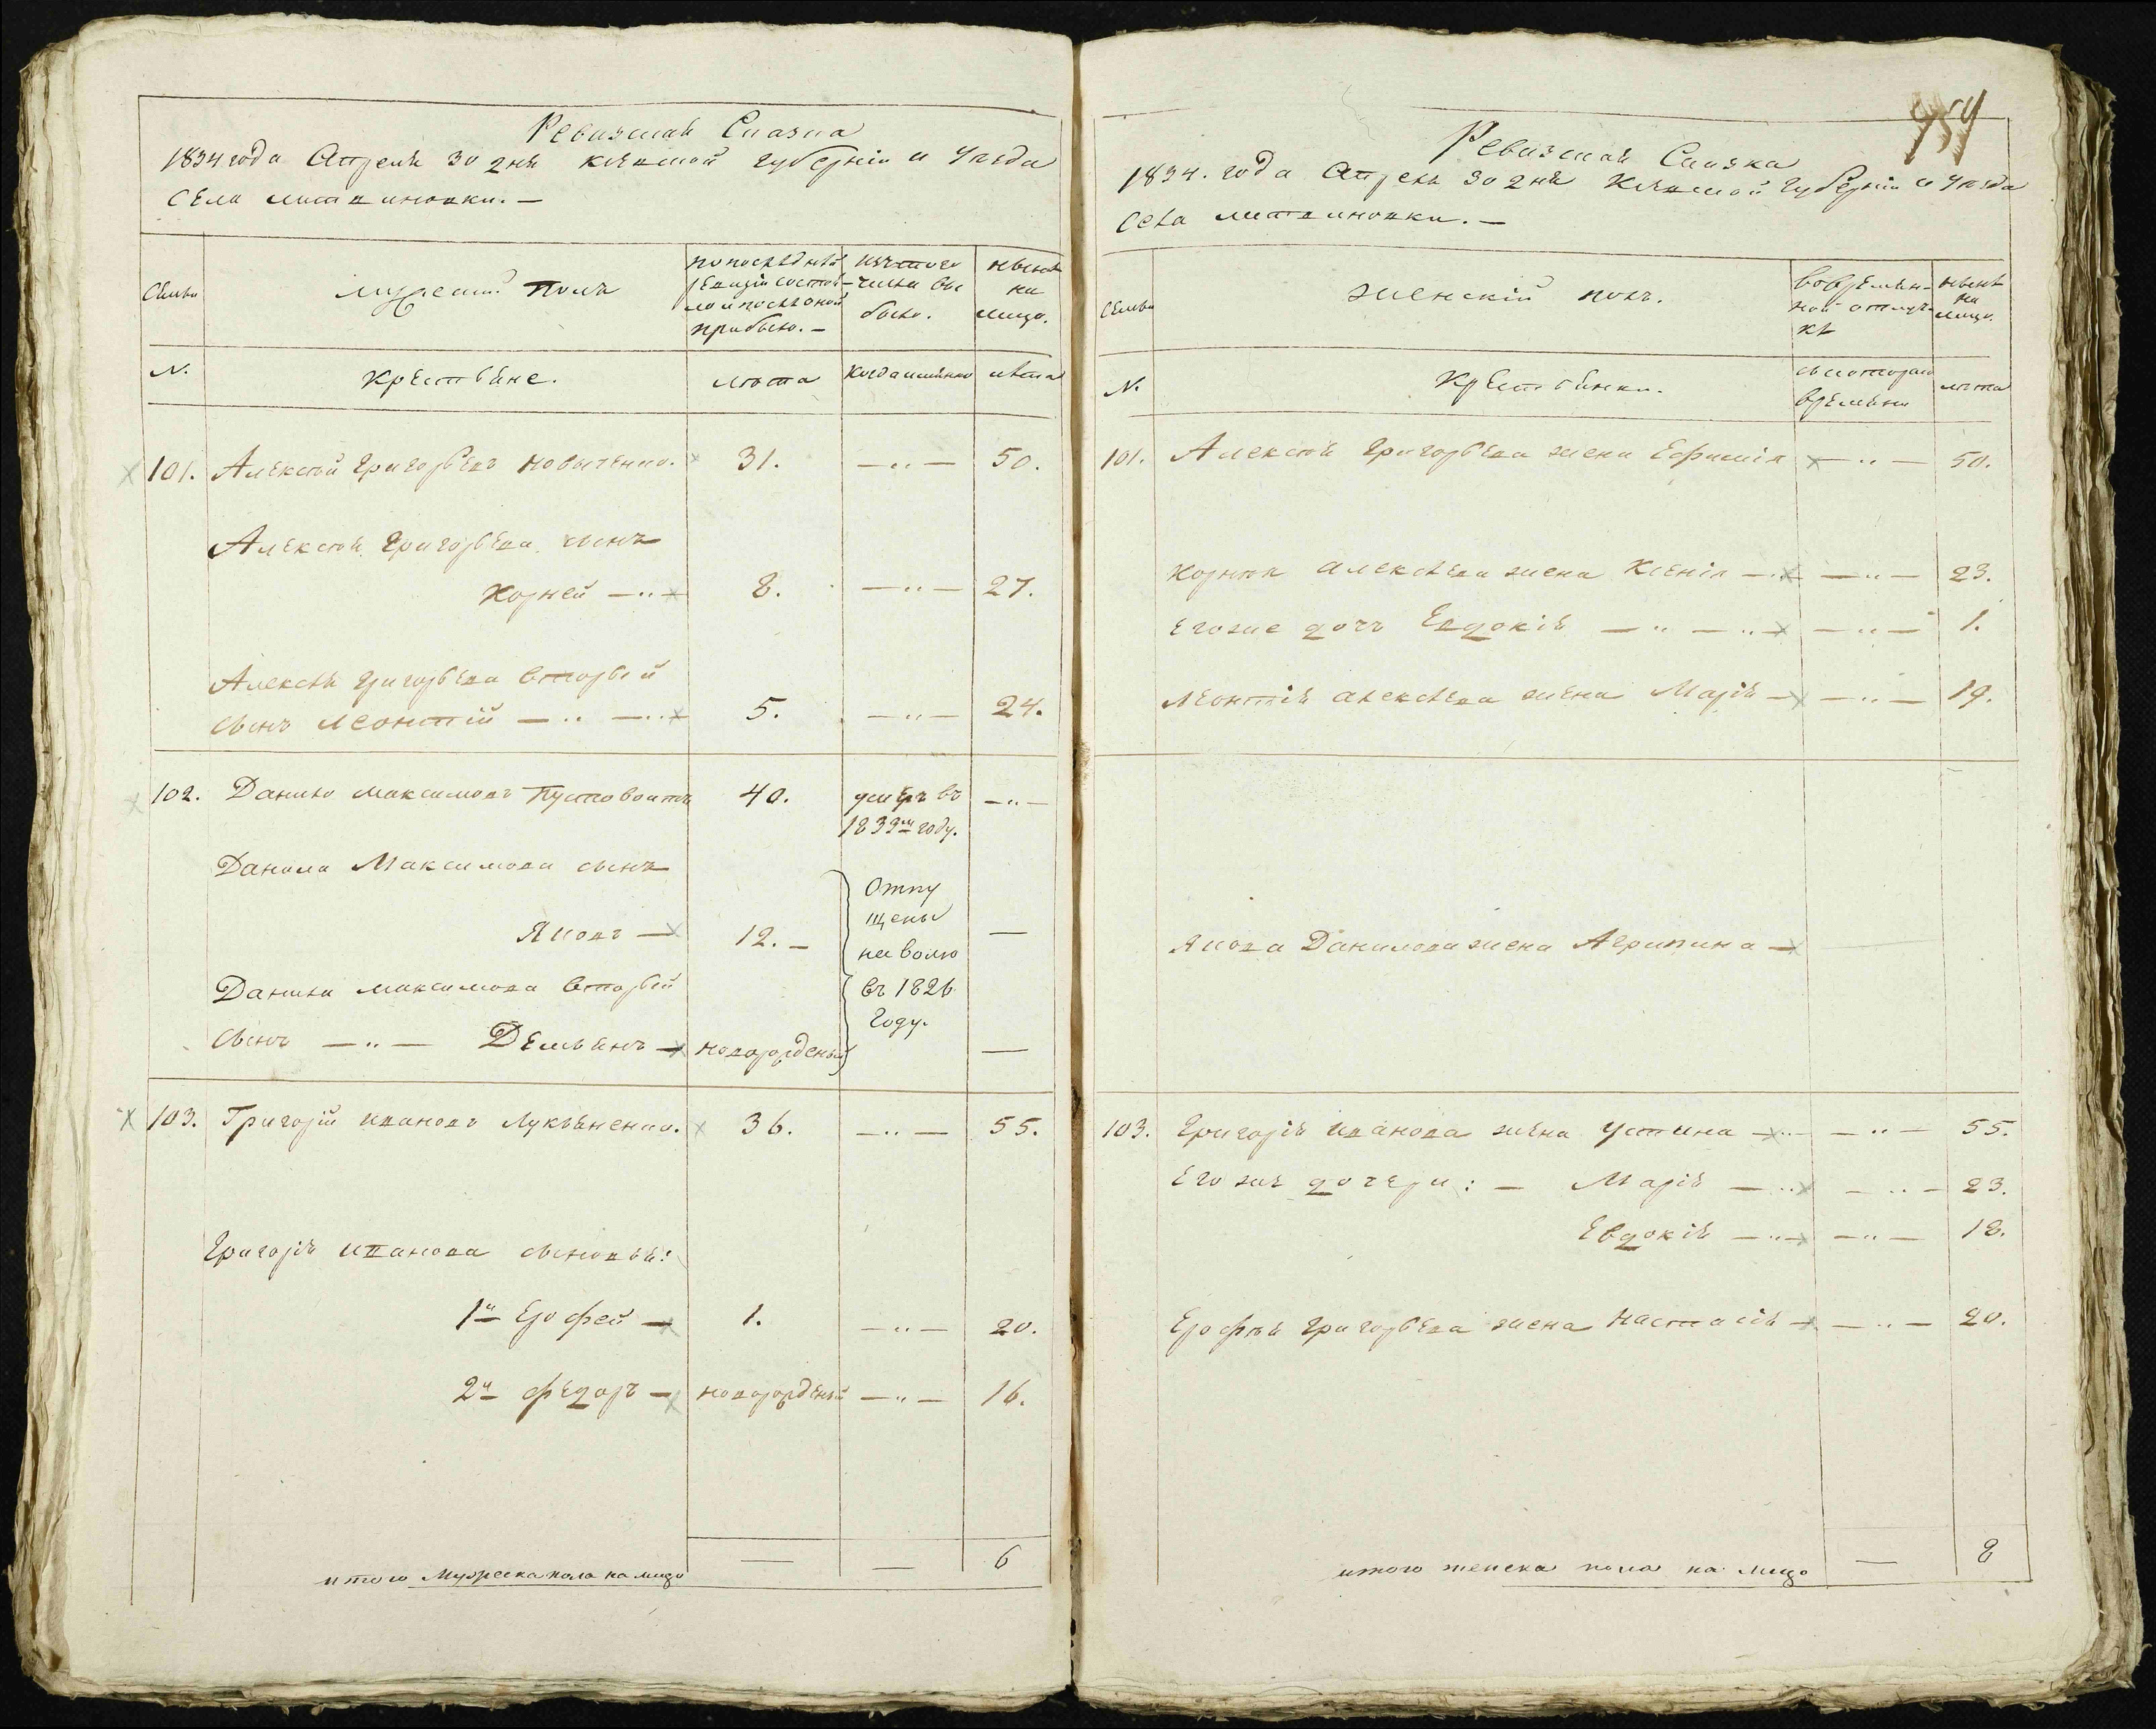 Ревизская Сказка
1834 года Апреля 30 дня Кіевской Губерніи и Уезда
Села Литвиновки. —
Семьи
Мужеский полъ
по последней ревизіи состояло и после оной прибыло. —
изъ того числа выбыло.
ныне на лицо.
№.
Крестьяне.
лета
когда именно
лета
101. Алексей Григорьевъ Новыченко. 31. —"— 50.
Алексея Григорьева сынъ
Корней —"— 8. —"— 27.
Алексея Григорьева вторый
сынъ Леонтій —"— —"— 5. —"— 24.
102. Данило Максимовъ Пустовоитъ 40. умеръ въ —"—
1833м году.
Данила Максимова сынъ
Яковъ — 12. — —
Отпу
щены
на волю
въ 1826
году.
Данила Максимова вторый
сынъ —"— Демьянъ — новорожденый —
103. Григорій Ивановъ Лукьяненко. 36. —"— 55.
Григорія Иванова сыновья:
1й Ерофей — 1. —"— 20.
2й Федоръ — новорожденый —"— 16.
итого Мужеска пола на лицо — — 6
959
Ревизская Сказка
1834. года Апреля 30 дня Кіевской Губерніи и Уезда
Села Литвиновки. —
Семьи
Женскій полъ.
во временной отлучке
ныне на лицо.
№.
Крестьянки.
съ котораго времени
лета
101. Алексея Григорьева жена Ефимія —"— 50.
Корнея Алексеева жена Ксенія —"— —"— 23.
Его же дочь Евдокія —"— —"— —"— 1.
Леонтія Алексеева жена Марія — —"— 19.
Якова Данилова жена Агрипина —
103. Григорія Иванова жена Устина —"— —"— 55.
Его же дочери: — Марія —"— —"— 23.
Евдокія —"— —"— 18.
Ерофея Григорьева жена Настасія — —"— 20.
итого женска пола на лицо — 8